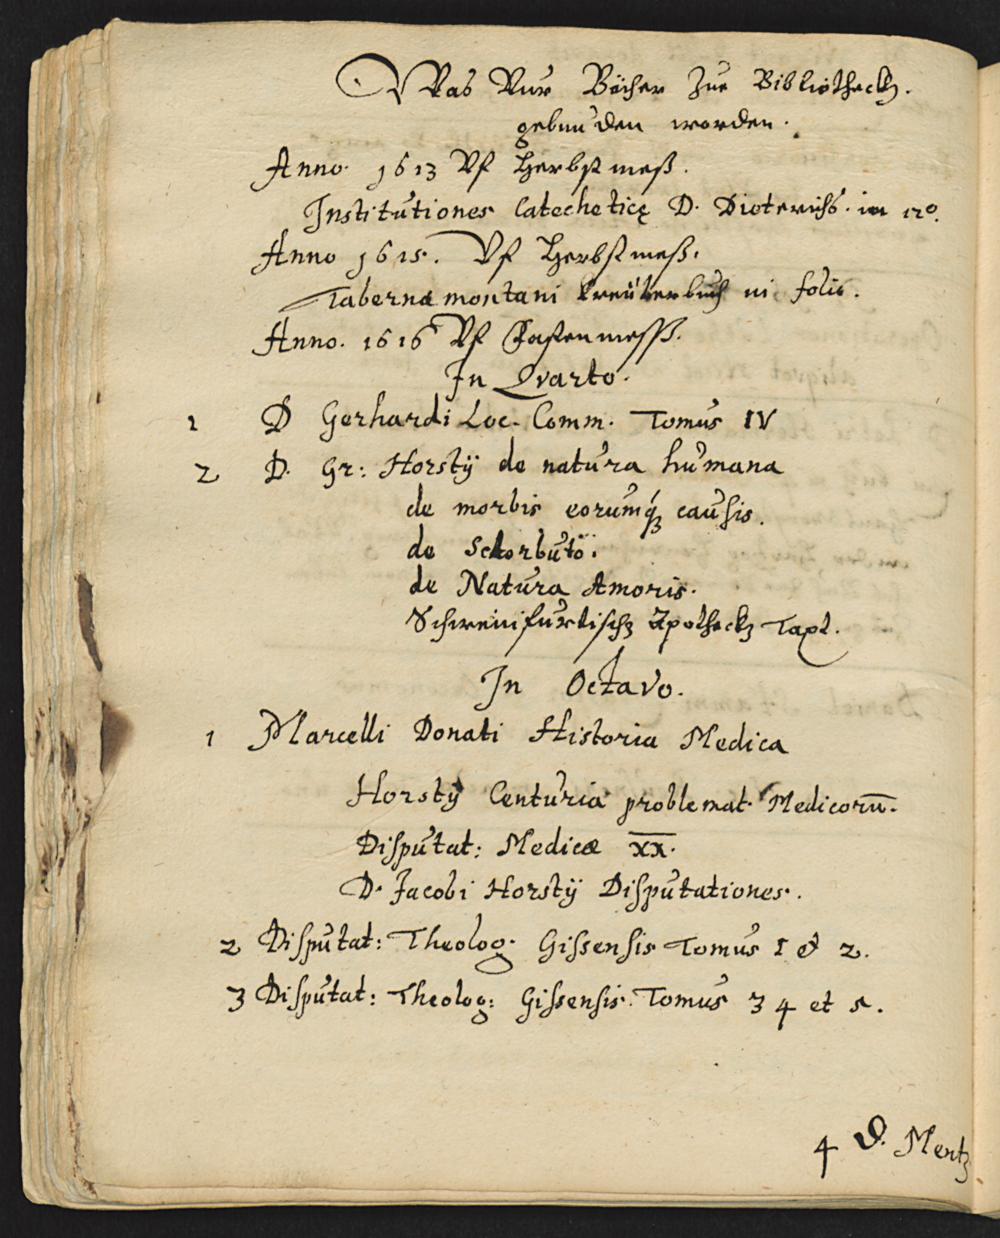 Was Vur Bücher Zur Bibliotheckh.
gebunden worden.
Anno. 1613 Vf Herbstmeß.
Institutiones Catecheticę D. Dieterichs. in 12o.
Anno 1615. Vf Herbstmeß.
Tabernæmontani Kreüterbuch in folio.
Anno. 1616 Vf Fastenmesß.
In Qvarto.
1 D Gerhardi Loc. Comm. Tomus IV
2 D. Gr: Horstÿ de natura humana
de morbis eorumq́ꝫ causis.
de Scorbuto.
de Natura Amoris.
Schweinfurtische Apotheckh Taxt.
In Octavo.
1 Marcelli Donati Historia Medica
Horstÿ Centuria problemat. Medicorū.
Disputat: Medicæ xx.
D. Jacobi Horstÿ Disputationes.
2 Disputat: Theolog. Gissensis Tomus 1 et 2.
3 Disputat: Theolog: Gissensis. Tomus 3 4 et 5.
4 D. Mentz